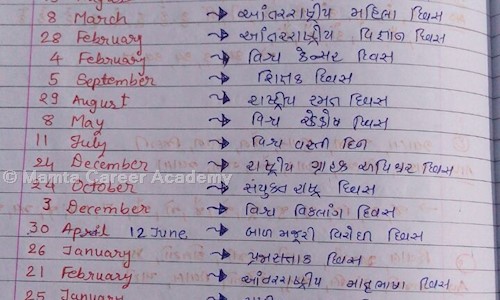 8 March → આંતરરાષ્ટ્રીય મહિલા દિવસ
28 February → આંતરરાષ્ટ્રીય વિજ્ઞાન દિવસ
4 February → વિશ્વ કેન્સર દિવસ
5 September → શિક્ષક દિવસ
29 August → રાષ્ટ્રીય રમત દિવસ
8 May → વિશ્વ રેડક્રોષ દિવસ
11 July → વિશ્વ વસ્તી દિન
24 December → રાષ્ટ્રીય ગ્રાહક અધિકાર દિવસ
© Mamta Career Academy
24 October → સંયુક્ત રાષ્ટ્ર દિવસ
3 December → વિશ્વ વિકલાંગ દિવસ
30 April 12 June → બાળ મજૂરી વિરોધી દિવસ
26 January → પ્રજાસત્તાક દિવસ
21 February → આંતરરાષ્ટ્રીય માતૃભાષા દિવસ
25 January →